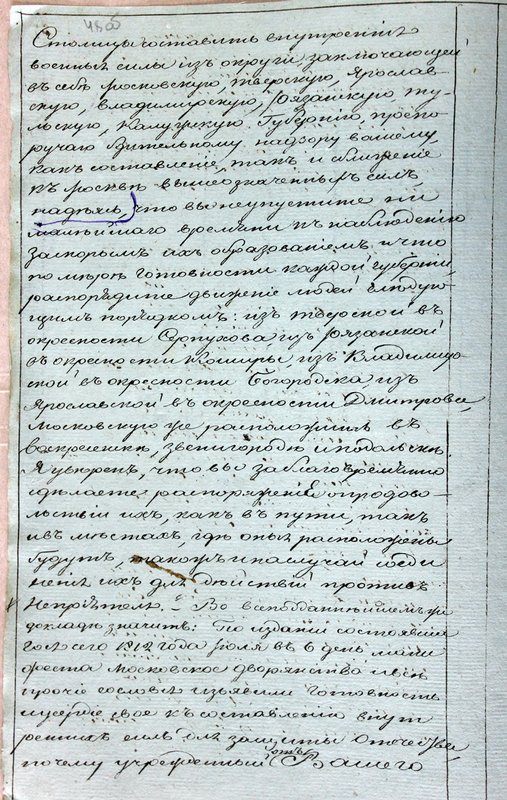 480
Столицы составить внутренніе
военныя силы изъ округи, заключающей
въ себѣ Московскую, Тверскую, Ярослав-
скую, Владимирскую, Рязанскую, Ту-
льскую, Калужскую Губерніи, препо-
ручаю бдительному надзору вашему,
какъ составленіе, такъ и сближеніе
къ Москвѣ вышеозначенныхъ силъ,
надѣясь, что вы неупустите ни
малѣйшаго времяни къ наблюденію
заскорымъ ихъ образованіемъ и что
по мѣрѣ готовности каждой губерніи,
распорядите движеніе людей слѣдую-
щимъ порядкомъ: изъ тверской въ
окресности Серпухова изъ Рязанской
въ окресности Коширы, изъ Владимир-
ской въ окресности Богородска изъ
Ярославской въ окресности Дмитрова,
Московскую же расположить въ
Воскресенкѣ, звенигородѣ иподольскѣ.
Я увѣренъ, что вы заблаговременно
сдѣлаете распоряженіе опродово-
льствіи ихъ, какъ въ пути, такъ
ивъ мѣстахъ гдѣ оныя расположены
будутъ, такожъ инаслучай соеди
ненія ихъ для дѣйствій противъ
непріятеля. Во всеподданнѣйшемъ же
докладѣ значитъ: По изданіи состоявша
гося сего 1812 года Іюля въ 6 день мани
феста Московское дворянство ивсѣ
прочіе сословія изъявили готовность
иусердіе свое къ составленію внут
реннихъ силъ для защиты Отечества,
почему учрежденный отъ Вашего